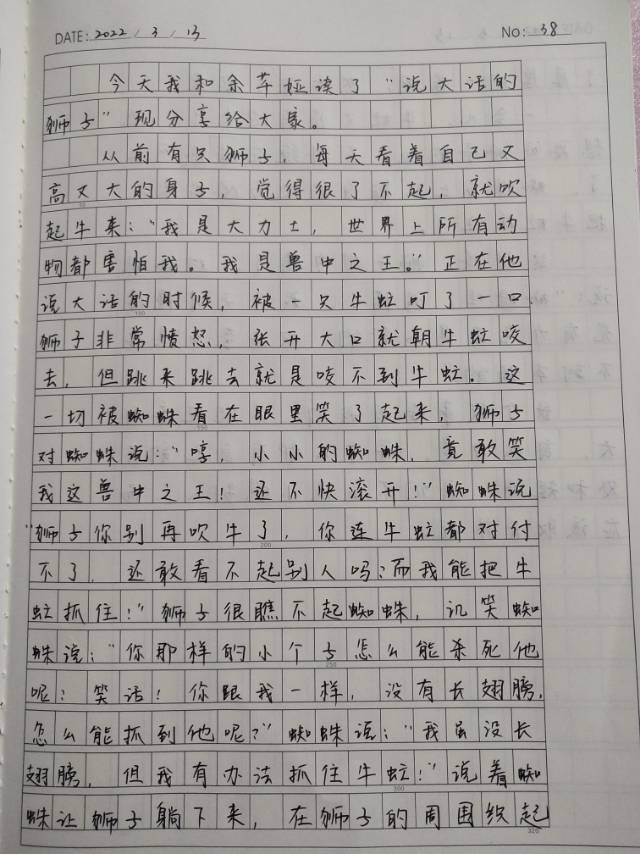 DATE: 2022 / 3 / 13 No: 38
今天我和余芊娅读了“说大话的
狮子”现分享给大家。
从前有只狮子，每天看着自己又
高又大的身子，觉得很了不起，就吹
起牛来：“我是大力士，世界上所有动
物都害怕我。我是兽中之王。”正在他
说大话的时候，被一只牛虻叮了一口
狮子非常愤怒，张开大口就朝牛虻咬
去，但跳来跳去就是咬不到牛虻。这
一切被蜘蛛看在眼里笑了起来，狮子
对蜘蛛说：“哼，小小的蜘蛛，竟敢笑
我这兽中之王！还不快滚开！”蜘蛛说
“狮子你别再吹牛了，你连牛虻都对付
不了，还敢看不起别人吗？而我能把牛
虻抓住！”狮子很瞧不起蜘蛛，讥笑蜘
蛛说：“你那样的小个子怎么能杀死他
呢？笑话！你跟我一样，没有长翅膀，
怎么能抓到他呢？”蜘蛛说：“我虽没长
翅膀，但我有办法抓住牛虻！”说着蜘
蛛让狮子躺下来，在狮子的周围织起